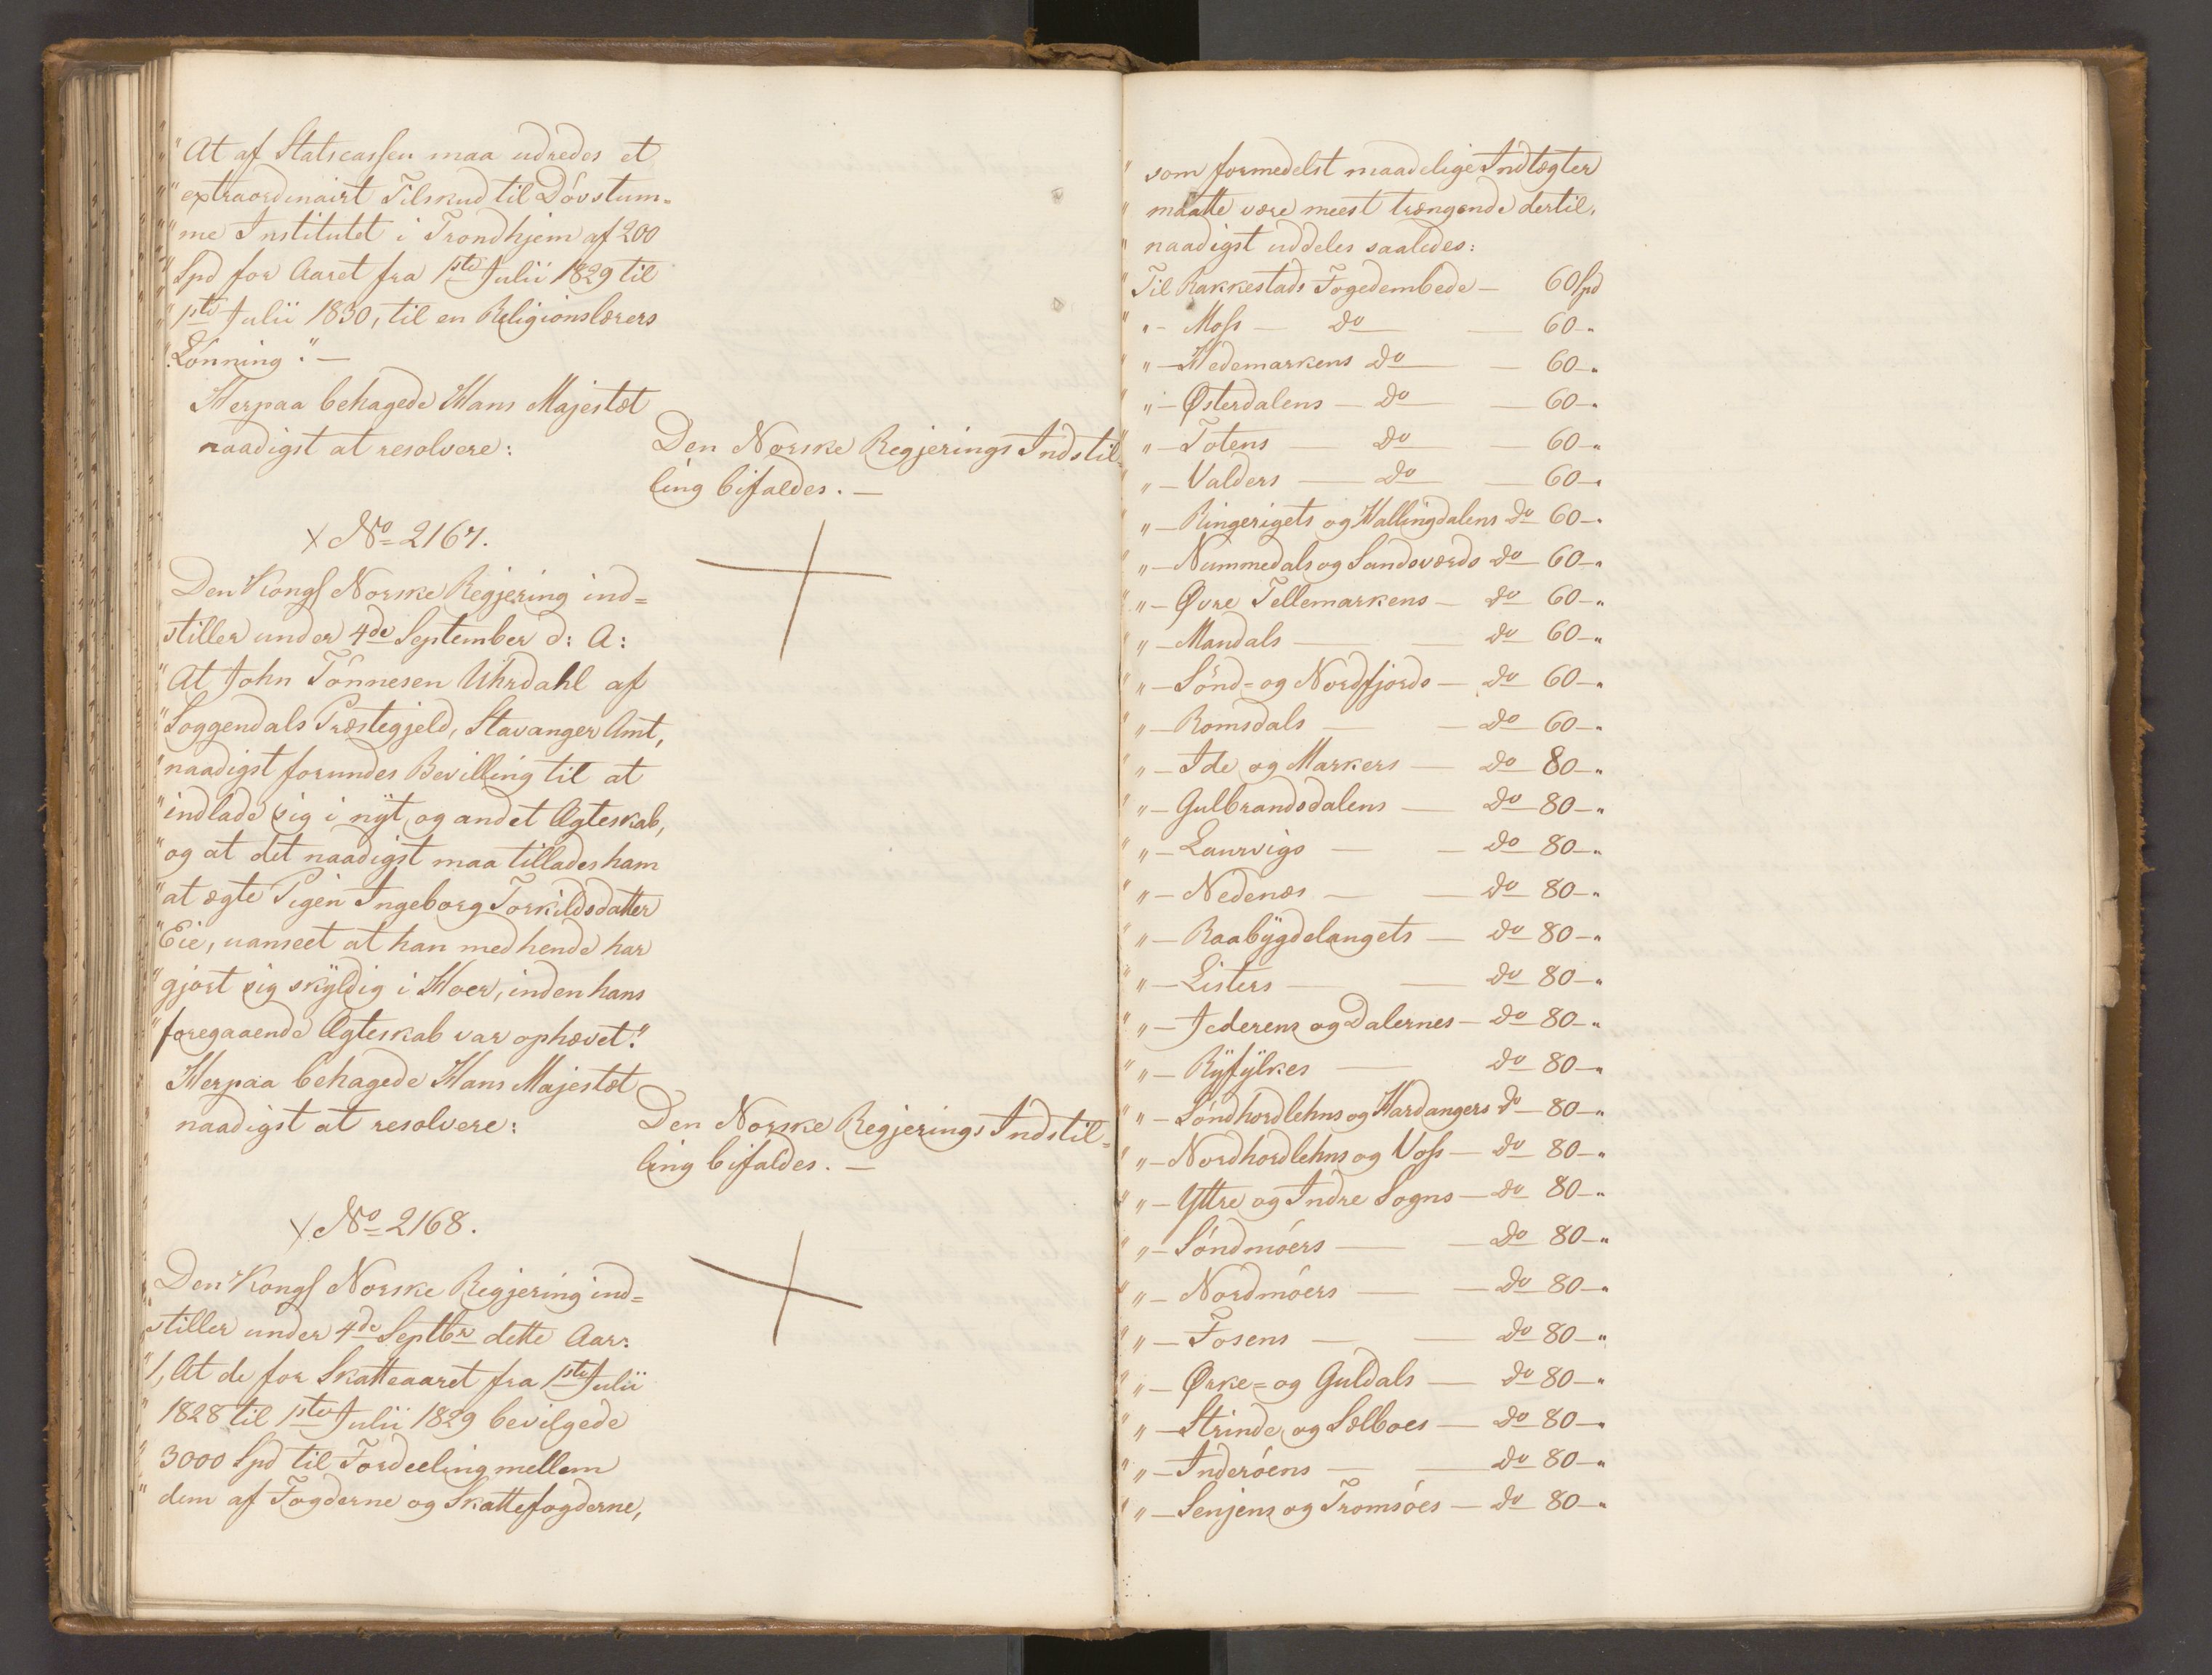 "At af Statscassen maa udredes et
"extraordinairt Tilskud til Dövstum=
"me Institutet i Trondhjem af 200
"Spd for Aaret fra 1ste Julii 1829 til
"1ste Julii 1830, til en Religionslærers
"Lönning". —
Herpaa behagede Hans Majestæt
naadigst at resolvere:
Den Norske Regjerings Indstil=
ling bifaldes. —
X No 2167.
Den Kongl Norske Regjering ind=
stiller under 4de September d: A:
"At John Tönnesen Uhrdahl af
"Soggendals Præstegjeld, Stavanger Amt,
"naadigst forundes Bevilling til at
"indlade sig i nÿt og andet Ægteskab,
"og at det naadigst maa tillades ham
"at ægte Pigen Ingeborg Torkildsdatter
"Eie, uanseet at han med hende har
"gjort sig skÿldig i Hoer, inden hans
"foregaaende Ægteskab var ophævet."
Herpaa behagede Hans Majestæt
naadigst at resolvere:
Den Norske Regjerings Indstil=
ling bifaldes. —
X No 2168.
Den Kongl Norske Regjering ind=
stiller under 4de Septbr dette Aar:
"1, At de for Skatteaaret fra 1ste Julii
"1828 til 1ste Julii 1829 bevilgede
"3000 Spd til Fordeeling mellem
"dem af Fogderne og Skattefogderne,
"som formedelst maadelige Indtægter
"maatte være meest trængende dertil,
"naadigst uddeles saaledes:
"Til Rakkestads Fogedembede — 60 Spd
" " — Moss — do — 60 — "
" " — Hedemarkens do — 60 — "
" " — Østerdalens — do — 60 — "
" " — Totens — do — 60 — "
" " — Valders — do — 60 — "
" " — Ringerigets og Hallingdalens do 60 — "
" " — Nummedals og Sandsværds do 60 — "
" " — Øvre Tellemarkens — do 60 — "
" " — Mandals — do 60 — "
" " — Sönd= og Nordfjords — do 60 — "
" " — Romsdals — do 60 — "
" " — Ide og Markers — do 80 — "
" " — Gulbrandsdalens — do 80 — "
" " — Laurvigs — do 80 — "
" " — Nedenæs — do 80 — "
" " — Raabÿgdelangets — do 80 — "
" " — Listers — do 80 — "
" " — Jederens og Dalernes — do 80 — "
" " — Rÿfÿlkes — do 80 — "
" " — Söndhordlehns og Hardangers do 80 — "
" " — Nordhordlehns og Voss — do 80 — "
" " — Yttre og Indre Sogns — do 80 — "
" " — Söndmöers — do 80 — "
" " — Nordmöers — do 80 — "
" " — Fosens — do 80 — "
" " — Ørke= og Guldals — do 80 — "
" " — Strinde og Selboes — do 80 — "
" " — Inderöens — do 80 — "
" " — Senjens og Tromsöes — do 80 — "